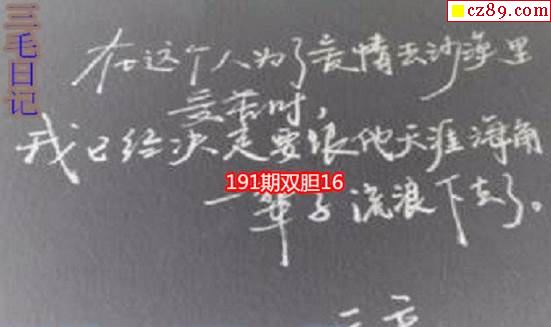 三毛日记
cz89.com
在这个人为了爱情去沙漠里
受苦时,
我已经决定要跟他天涯海角
191期双胆16
一辈子流浪下去了。
三毛